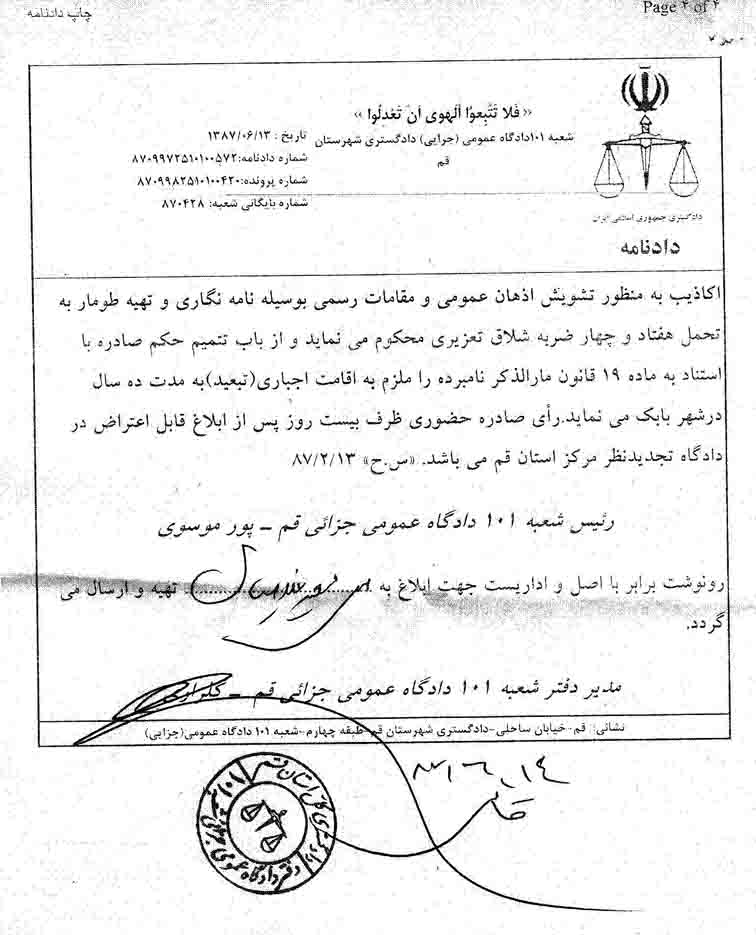 Page ۴ of ۴
چاپ دادنامه
«فَلا تَتَّبِعوُا اَلهَوی اَنْ تَعْدلُوا»
شعبه ۱۰۱دادگاه عمومی (جزایی) دادگستری شهرستان
قم
تاریخ : ۱۳۸۷/۰۶/۱۳
شماره دادنامه:۸۷۰۹۹۷۲۵۱۰۱۰۰۵۷۲
شماره پرونده:۸۷۰۹۹۸۲۵۱۰۱۰۰۴۲۰
شماره بایگانی شعبه: ۸۷۰۴۲۸
دادگستری جمهوری اسلامی ایران
دادنامه
اکاذیب به منظور تشویش اذهان عمومی و مقامات رسمی بوسیله نامه نگاری و تهیه طومار به
تحمل هفتاد و چهار ضربه شلاق تعزیری محکوم می نماید و از باب تتمیم حکم صادره با
استناد به ماده ۱۹ قانون مارالذکر نامبرده را ملزم به اقامت اجباری(تبعید)به مدت ده سال
درشهر بابک می نماید.رأی صادره حضوری ظرف بیست روز پس از ابلاغ قابل اعتراض در
دادگاه تجدیدنظر مرکز استان قم می باشد. «س.ح» ۸۷/۲/۱۳
رئیس شعبه ۱۰۱ دادگاه عمومی جزائی قم ــ پور موسوی
رونوشت برابر با اصل و اداریست جهت ابلاغ به ........................ تهیه و ارسال می
گردد.
مدیر دفتر شعبه ۱۰۱ دادگاه عمومی جزائی قم ــ
نشانی: قم-خیابان ساحلی-دادگستری شهرستان قم-طبقه چهارم-شعبه ۱۰۱ دادگاه عمومی(جزایی)